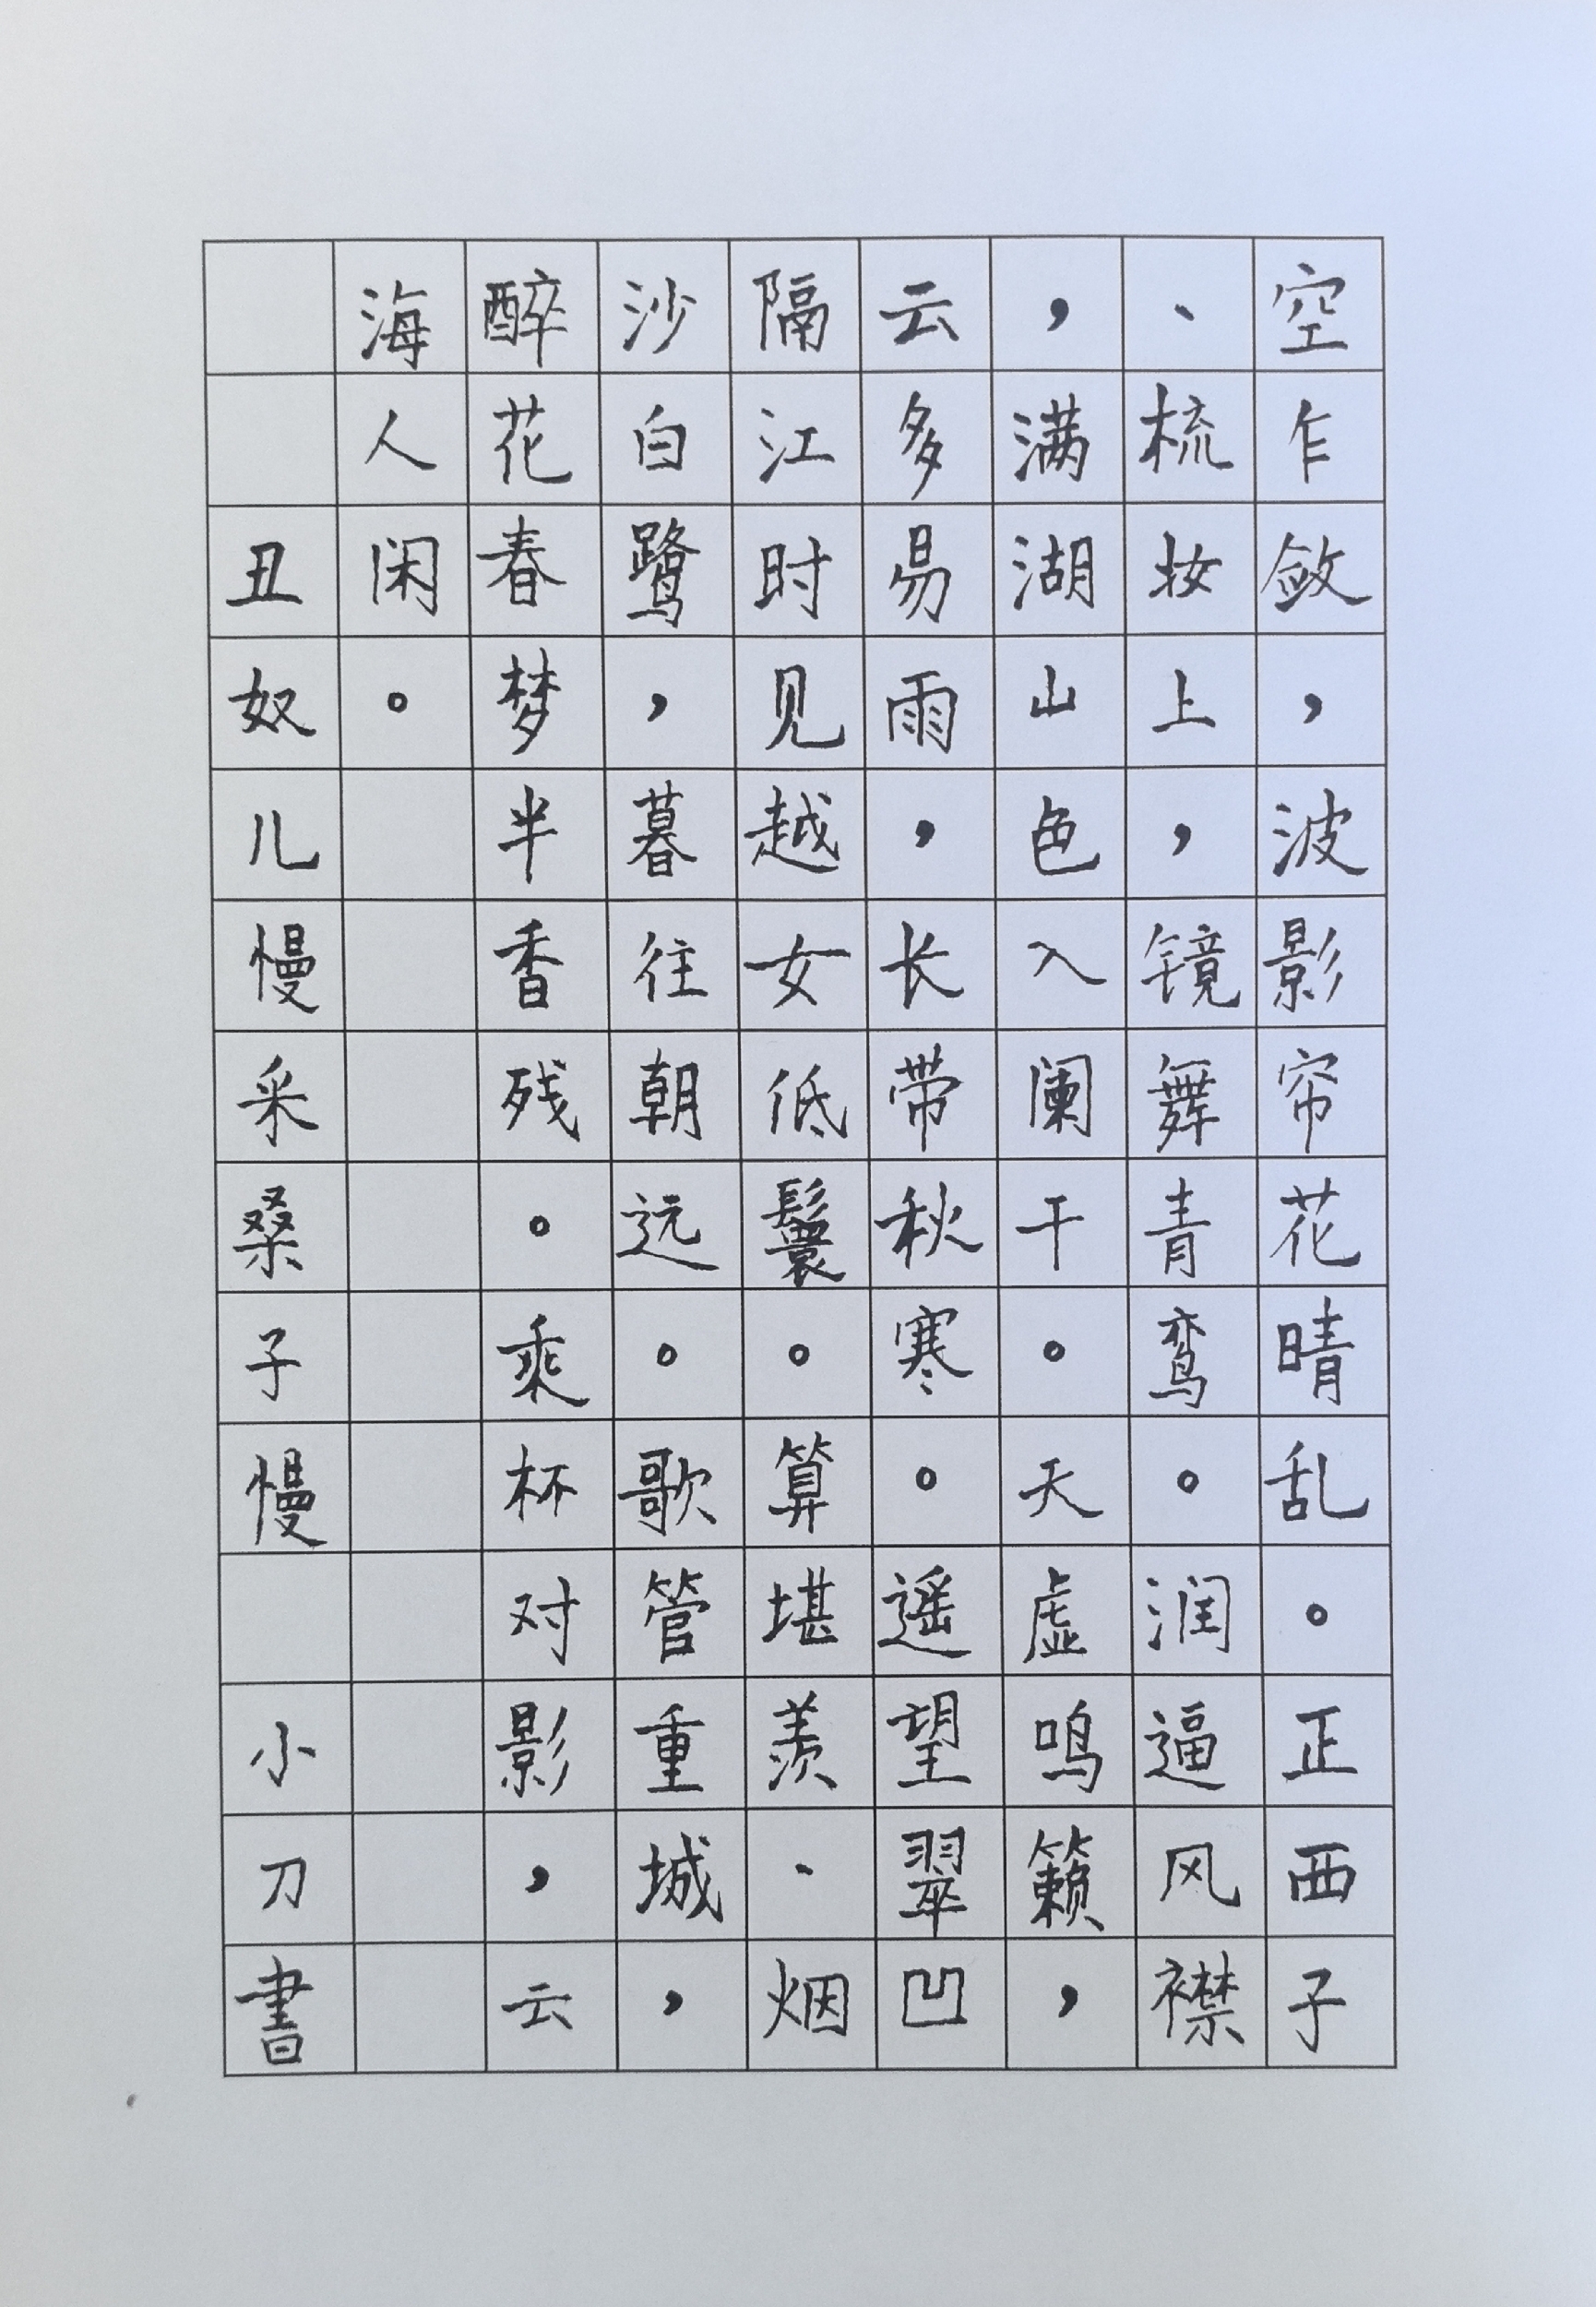 空乍敛，波影帘花晴乱。正西子
、梳妆上，镜舞青鸾。润逼风襟
，满湖山色入阑干。天虚鸣籁，
云多易雨，长带秋寒。遥望翠凹
隔江时见越女低鬟。算堪羡、烟
沙白鹭，暮往朝远。歌管重城，
醉花春梦半香残。乘杯对影，云
海人闲。
丑奴儿慢采桑子慢 小刀書